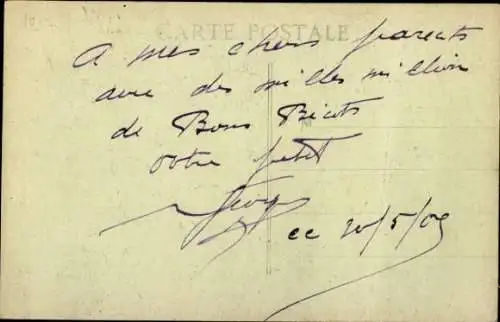 CARTE POSTALE
A mes chers parents
avec des milles million
de Bons Bécots
votre petit
ce 20/5/05